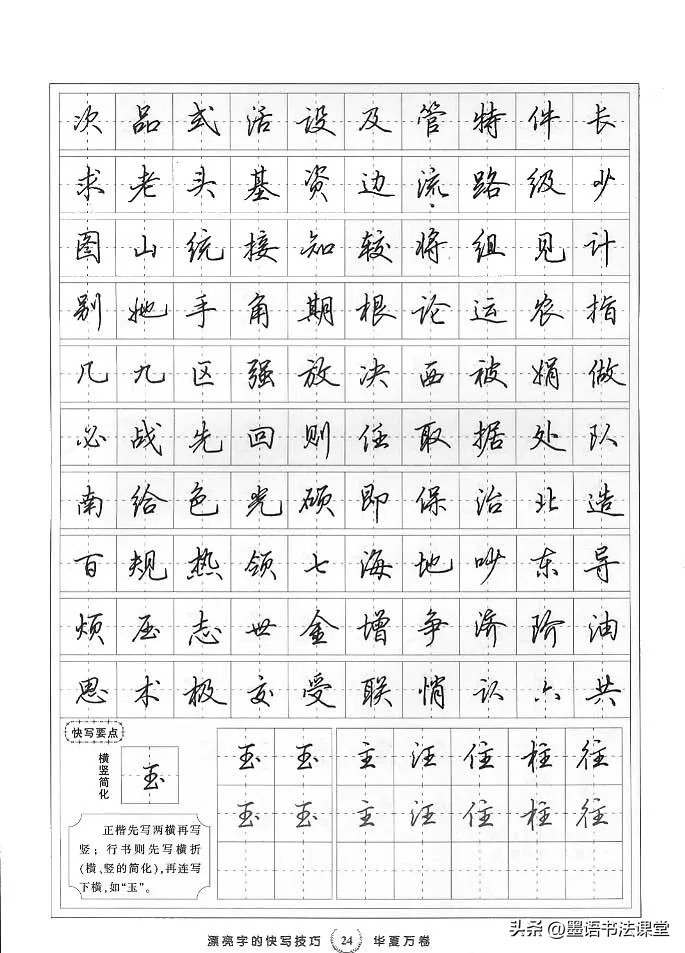 次品式活设及管特件长
求老头基资边流路级少
图山统接知较将组见计
别她手角期根论运农指
几九区强放决西被娟做
必战先回则任取据处队
南给色光硕即保治北造
百规热领七海地吵东导
烦压志世金增争济阶油
思术极交受联悄认六共
快写要点
横竖简化
玉
正楷先写两横再写
竖；行书则先写横折
(横、竖的简化)，再连写
下横，如“玉”。
玉玉主汪住柱往
玉玉主汪住柱往
漂亮字的快写技巧 24 华夏万卷
头条@墨语书法课堂